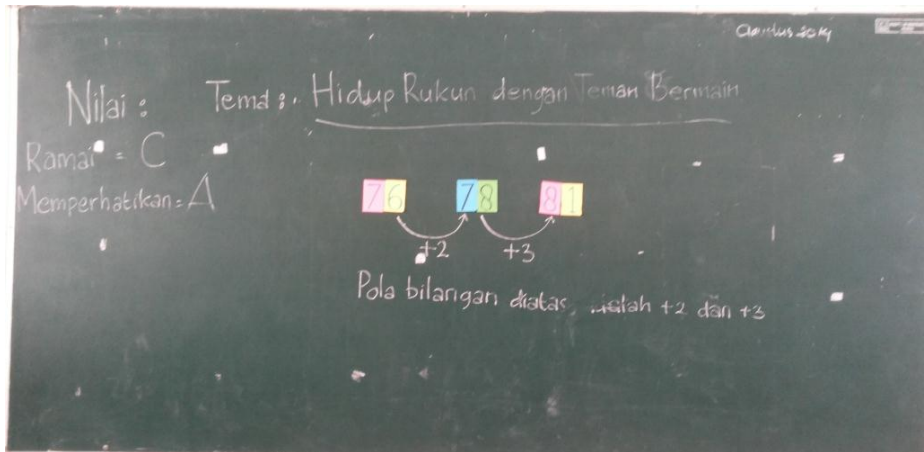 Agustus 2014
Nilai : Tema : Hidup Rukun dengan Teman Bermain
Ramai = C
Memperhatikan = A
76 78 81
+2 +3
Pola bilangan diatas adalah +2 dan +3